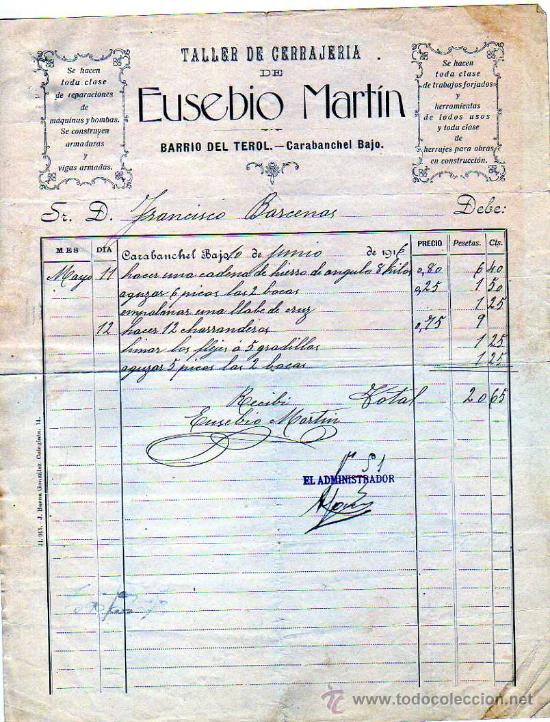 TALLER DE CERRAJERIA
DE
Eusebio Martín
BARRIO DEL TEROL.—Carabanchel Bajo.
Se hacen
toda clase
de reparaciones
de
maquinas y bombas.
Se construyen
armaduras
y
vigas armadas.
Se hacen
toda clase
de trabajos forjados
y
herramientas
de todos usos
y toda clase
de
herrajes para obras
en construcción.
Sr. D. Francisco Barcenas Debe:
MES DÍA Carabanchel Bajo 10 de Junio de 1916 PRECIO Pesetas. Cts.
Mayo 11 hacer una cadena de hierro de angulo 8 kilos 0,80 6 40
aguzar 6 picos las 2 bocas 0,25 1 50
empalmar una llabe de cruz 1 25
12 hacer 12 charranderas 0,75 9
limar los flejes á 5 gradillas 1 25
aguzar 5 picos las 2 bocas 1 25
Recibi Total 20 65
Eusebio Martin
EL ADMINISTRADOR
www.todocoleccion.net